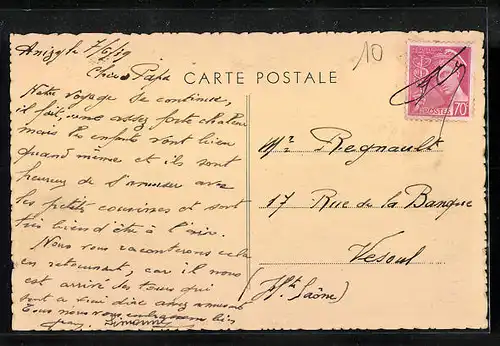 Anizy le 7/6/39
10
Cher Papa
CARTE POSTALE
Notre voyage se continue,
il fait, une assez forte chaleur
mais les enfants vont bien
quand même et ils sont
heureux de s'amuser avec
les petits cousines et sont
très bien d'être à l'air.
Nous vous raconterons cela
en retournant, car il nous
est arrivé des tours qui
sont à dire assez
Tous nous vous embrassons bien
Simonne
POSTES
70c
Mr Regnault
17 Rue de la Banque
Vesoul
(Hte Saône)